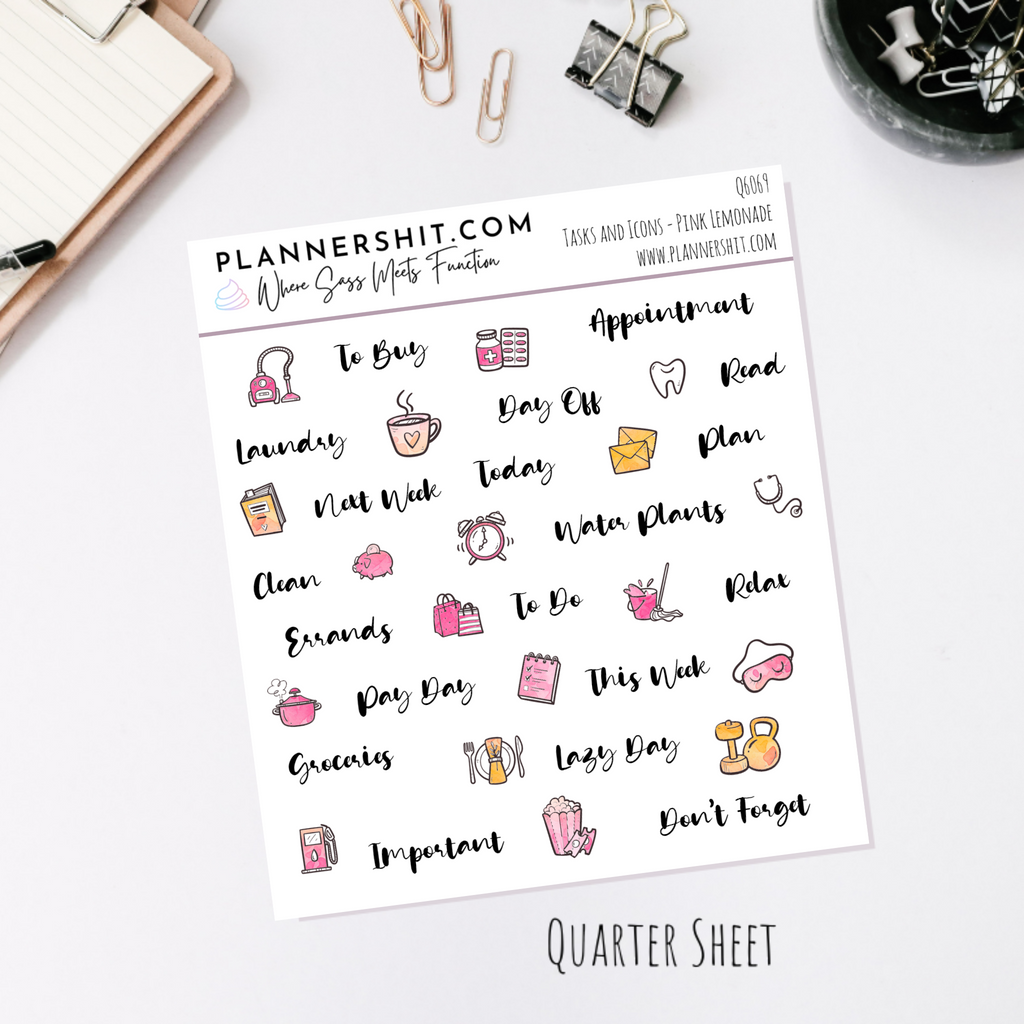 PLANNERSHIT.COM
Where Sass Meets Function
Q6069
Tasks and Icons - Pink Lemonade
www.plannershit.com
To Buy
Appointment
Read
Laundry
Day Off
Plan
Next Week
Today
Water Plants
Clean
To Do
Relax
Errands
Pay Day
This Week
Groceries
Lazy Day
Don't Forget
Important
Quarter Sheet